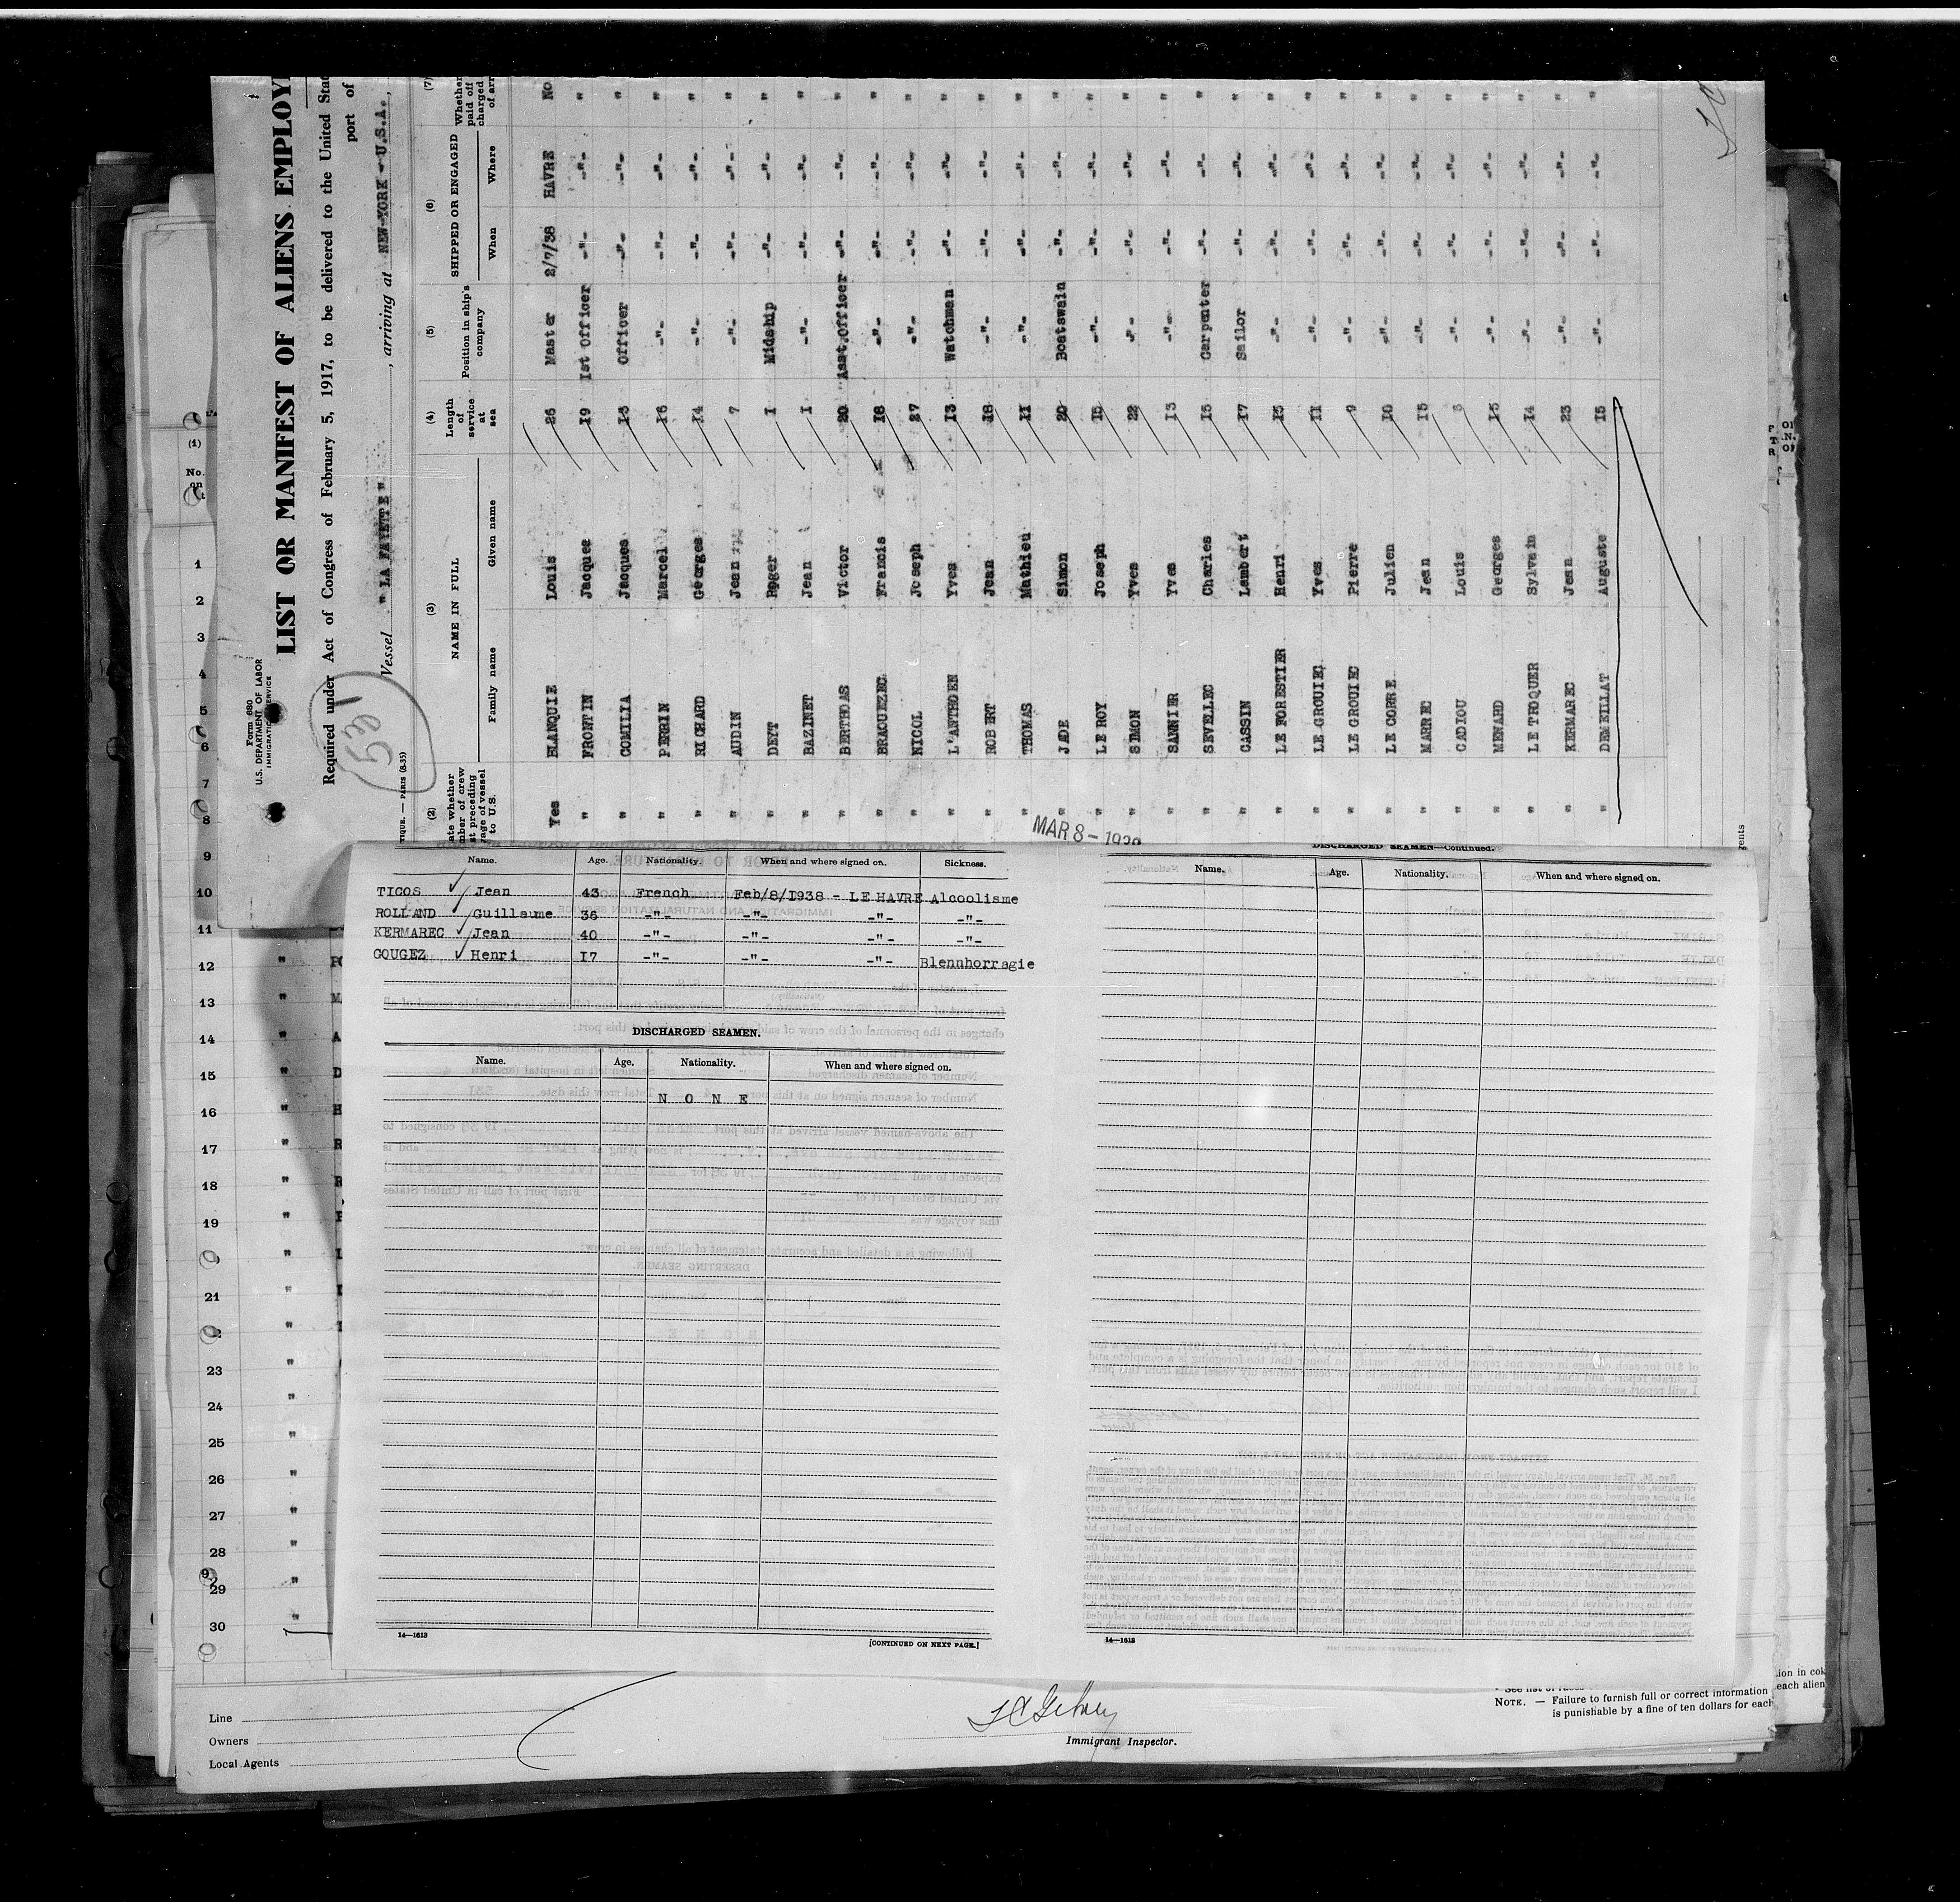 Form 680
U.S. DEPARTMENT OF LABOR
LIST OR MANIFEST OF ALIENS EMPLOY
Required under Act of Congress of February 5, 1917, to be delivered to the United Stat
port of
Vessel "LA FAYETTE", arriving at NEW-YORK - U.S.A.,
TIQUE. — PARIS (8-35)
(2) (3) (4) (5) (6) (7)
NAME IN FULL
Family name Given name
Length of service at sea
Position in ship's company
SHIPPED OR ENGAGED
When Where
Yes BLANQUIE Louis 26 Master 2/7/38 HAVRE No
" FRONTIN Jacques 19 1st Officer -"- -"- "
" COMILIA Jacques 13 Officer -"- -"- "
" PERRIN Marcel 16 -"- -"- -"- "
" RICHARD Georges 14 -"- -"- -"- "
" AUDIN Jean 7 -"- -"- -"- "
" DEYT Roger 1 Midship -"- -"- "
" BAZINET Jean 1 -"- -"- -"- "
" BERTHOAS Victor 20 Asst.Officer -"- -"- "
" BRAOUEZEC Francis 18 -"- -"- -"- "
" NICOL Joseph 27 -"- -"- -"- "
" L'ANTHOEN Yves 13 Watchman -"- -"- "
" ROBERT Jean 18 -"- -"- -"- "
" THOMAS Mathieu 11 -"- -"- -"- "
" JADE Simon 20 Boatswain -"- -"- "
" LE ROY Joseph 15 -"- -"- -"- "
" SIMON Yves 22 -"- -"- -"- "
" SANNIER Yves 13 -"- -"- -"- "
" SEVELLEC Charles 15 Carpenter -"- -"- "
" CASSIN Lambert 17 Sailor -"- -"- "
" LE FORESTIER Henri 13 -"- -"- -"- "
" LE GROUIEC Yves 11 -"- -"- -"- "
" LE GROUIEC Pierre 9 -"- -"- -"- "
" LE CORRE Julien 10 -"- -"- -"- "
" MARREC Jean 15 -"- -"- -"- "
" CADIOU Louis 3 -"- -"- -"- "
" MENARD Georges 15 -"- -"- -"- "
" LE TROQUER Sylvain 14 -"- -"- -"- "
" KERMAREC Jean 23 -"- -"- -"- "
" DEMEILLAT Auguste 15 -"- -"- -"- "
MAR 8 - 1938
Name. Age. Nationality. When and where signed on. Sickness.
TICOS Jean 43 French Feb/8/1938 - LE HAVRE Alcoolisme
ROLLAND Guillaume 36 -"- -"- -"- -"-
KERMAREC Jean 40 -"- -"- -"- -"-
GOUGEZ Henri 17 -"- -"- -"- Blennhorragie
DISCHARGED SEAMEN.
Name. Age. Nationality. When and where signed on.
N O N E
14—1613
[CONTINUED ON NEXT PAGE.]
DISCHARGED SEAMEN—Continued.
Name. Age. Nationality. When and where signed on.
14—1613
(1)
No.
1
2
3
4
5
6
7
8
9
10
11
12
13
14
15
16
17
18
19
21
23
24
25
26
27
28
29
30
Line
Owners
Local Agents
Immigrant Inspector.
NOTE. — Failure to furnish full or correct information
is punishable by a fine of ten dollars for each
each alien